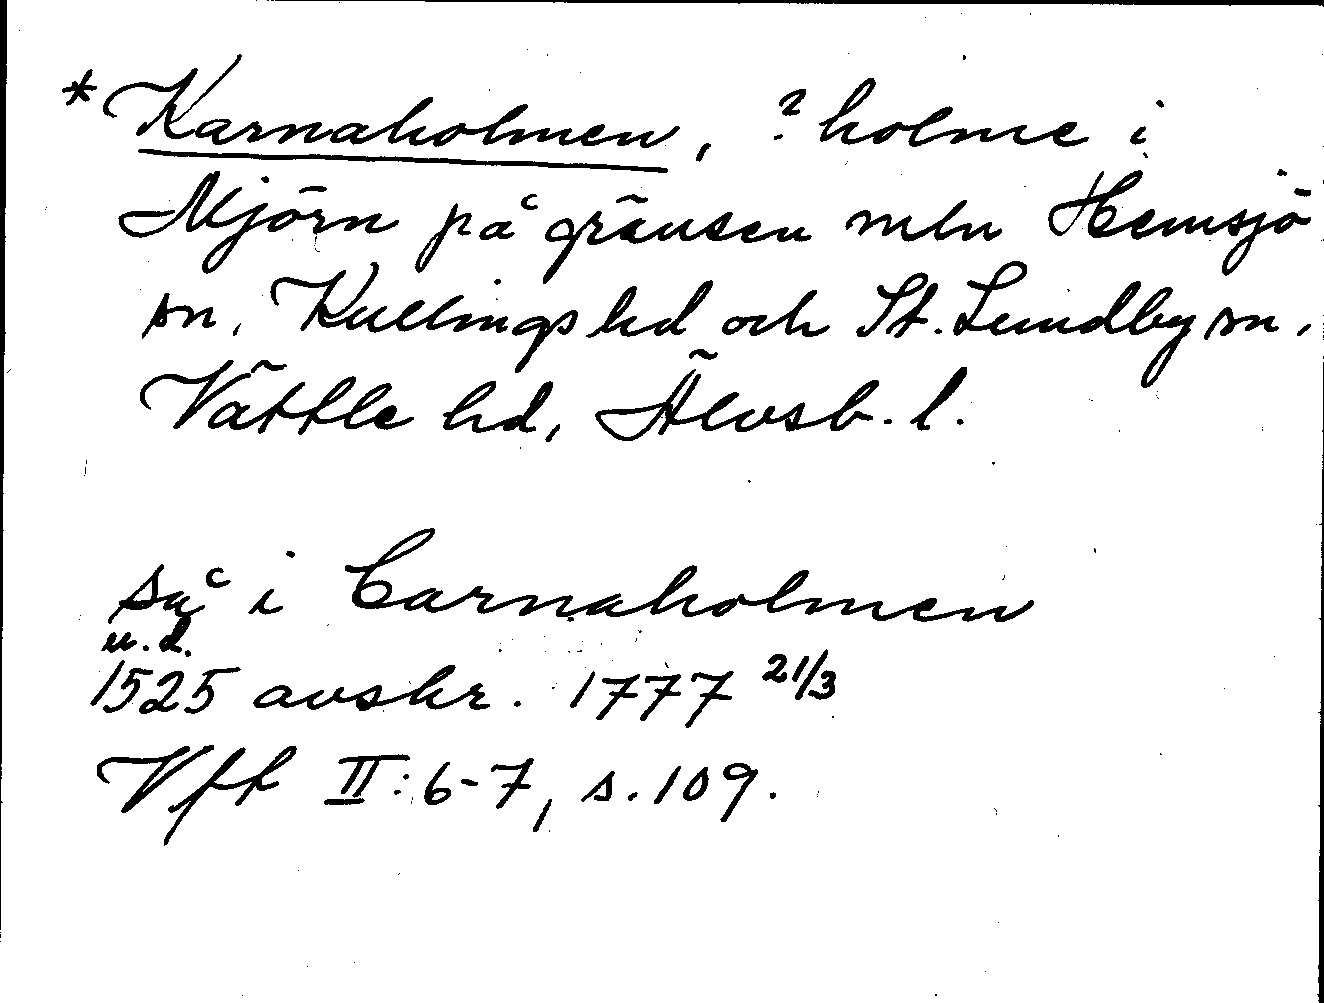 * Karnaholmen, ? holme i
Mjörn på gränsen mln Hemsjö
sn, Kullings hd och St. Lundby sn,
Vättle hd, Älvsb. l.
så i Carnaholmen
u.d.
1525 avskr. 1777 21/3
Vft II:6-7, s.109.